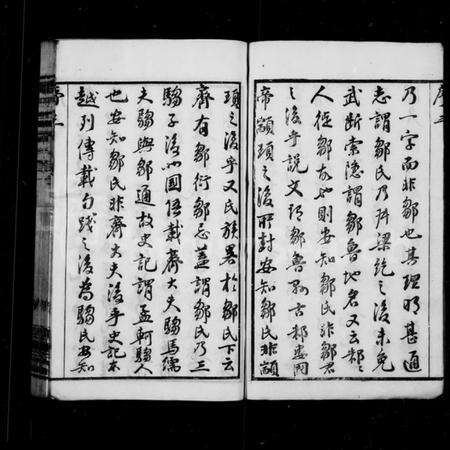 乃一字而非鄒也其理明甚通
志謂鄒氏乃叔梁紇之後未免
武斷索隱謂鄒魯地名又云邾
人徙鄒故也則安知鄒氏非鄒君
之後乎說文邾鄒魯縣古邾婁國
帝顓頊之後所封安知鄒氏非顓
頊之後乎又氏族略於鄒氏下云
齊有鄒衍鄒忌蓋謂鄒氏乃三
騶子後也國語載齊大夫騶馬繻
夫騶與鄒通故史記謂孟軻騶人
也安知鄒氏非齊大夫後乎史記東
越列傳載句踐之後為騶氏安知